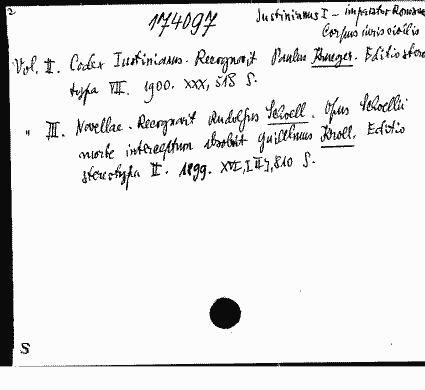 2
174097
Justinianus I - imperator Romanus
Corpus iuris civilis
Vol. II. Codex Iustinianus. Recognovit Paulus Krueger. Editio stereo-
typa VII. 1900. XXX, 518 S.
" III. Novellae. Recognovit Rudolfus Schoell. Opus Schoellii
morte interceptum absolvit Guilelmus Kroll. Editio
stereotypa II. 1899. XVI, [II], 810 S.
S